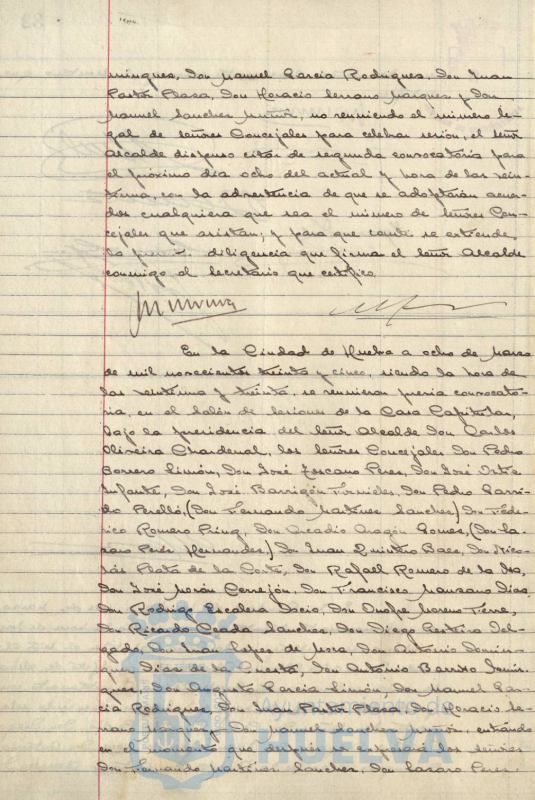 mingues, Don Manuel Garcia Rodrigues, Don Juan
Pastor Plasa, Don Horacio Serrano Marques y Don
Manuel Sanches Muñiz, no reuniendo el número le-
gal de señores Concejales para celebrar sesión, el señor
Alcalde dispuso citar de segunda convocatoria para
el próximo dia ocho del actual y hora de las vein-
tiuna, con la advertencia de que se adoptarán acuer-
dos cualquiera que sea el número de señores Con-
cejales que asistan; y para que conste se extiende
la diligencia que firma el señor Alcalde
conmigo el Secretario que certifico.
En la Ciudad de Huelva a ocho de Marzo
de mil novecientos treinta y cinco, siendo la hora de
las veintiuna y treinta, se reunieron previa convocato-
ria, en el Salón de Sesiones de la Casa Capitular,
bajo la presidencia del señor Alcalde Don Carlos
Oliveira Chardenal, los señores Concejales Don Pedro
Borrero Limón, Don José Toscano Peres, Don José Ortiz
Infante, Don José Barrigón Don Pedro Garri-
do Perelló, (Don Fernando Martines Sanches) Don Fede-
rico Romero Don Arcadio Aragón Gomes, (Don La-
zaro Peres Hernandes) Don Juan Quintero Baes, Don Nico-
lás Plata de la Corte, Don Rafael Romero de la
Don José Morán Cerrejón, Don Francisco Manzano Dias,
Don Rodrigo Escalera Don Onofre Moreno
Don Ricardo Sanches, Don Diego Del-
gado, Don Juan Lopes de Mora, Don Antonio Domin-
gues Dias de la Cuesta, Don Antonio Barroso
Don Augusto Garcia Limón, Don Manuel Gar-
cia Rodrigues, Don Juan Pastor Plasa, Don Horacio Se-
rrano Marques y Don Manuel Sanches Muñiz, entrando
en el momento que después se expresará los señores
Don Fernando Martines Sanches, Don Lazaro Peres
HUELVA